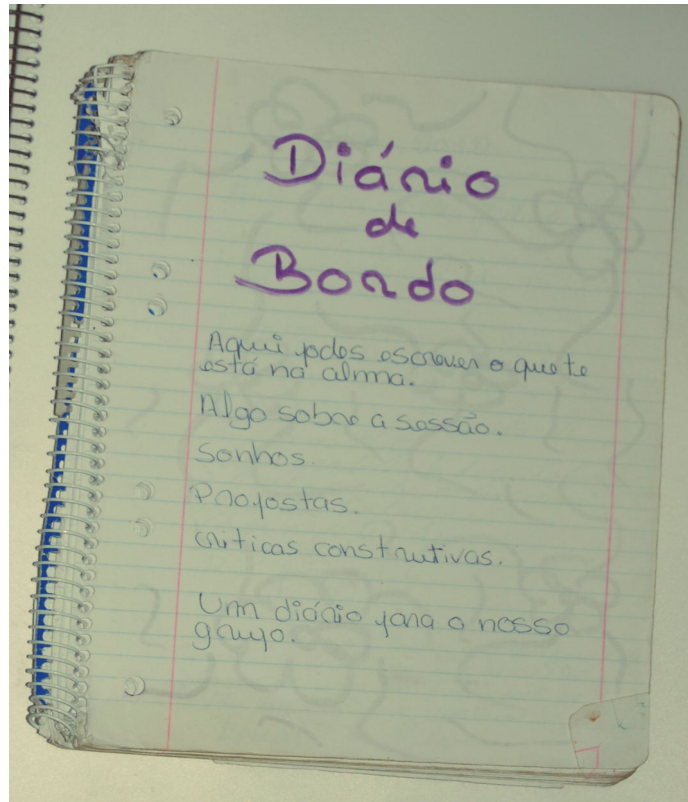 Diário
de
Bordo
Aqui podes escrever o que te
está na alma.
Algo sobre a sessão.
Sonhos.
Propostas.
críticas construtivas.
Um diário para o nosso
grupo.